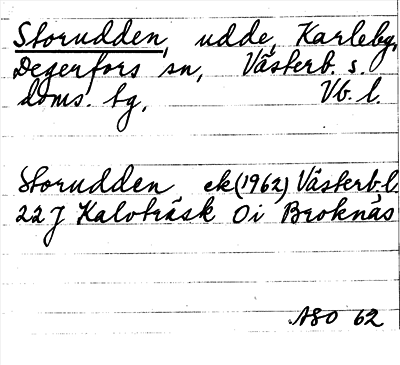 Storudden, udde, Karlebg,
Degerfors sn, Västerb. s.
doms. tg, Vb. l.
Storudden ek (1962) Västerb. l
22 J Kalvträsk 0 i Broknäs
ASO 62